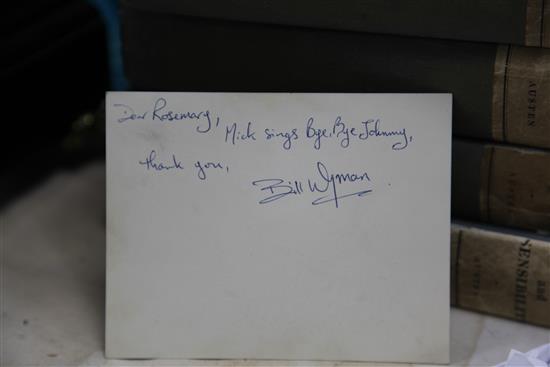 Dear Rosemary,
Mick sings Bye, Bye Johnny,
thank you,
Bill Wyman
AUSTEN
AUSTEN
SENSIBILITY
and
AUSTEN